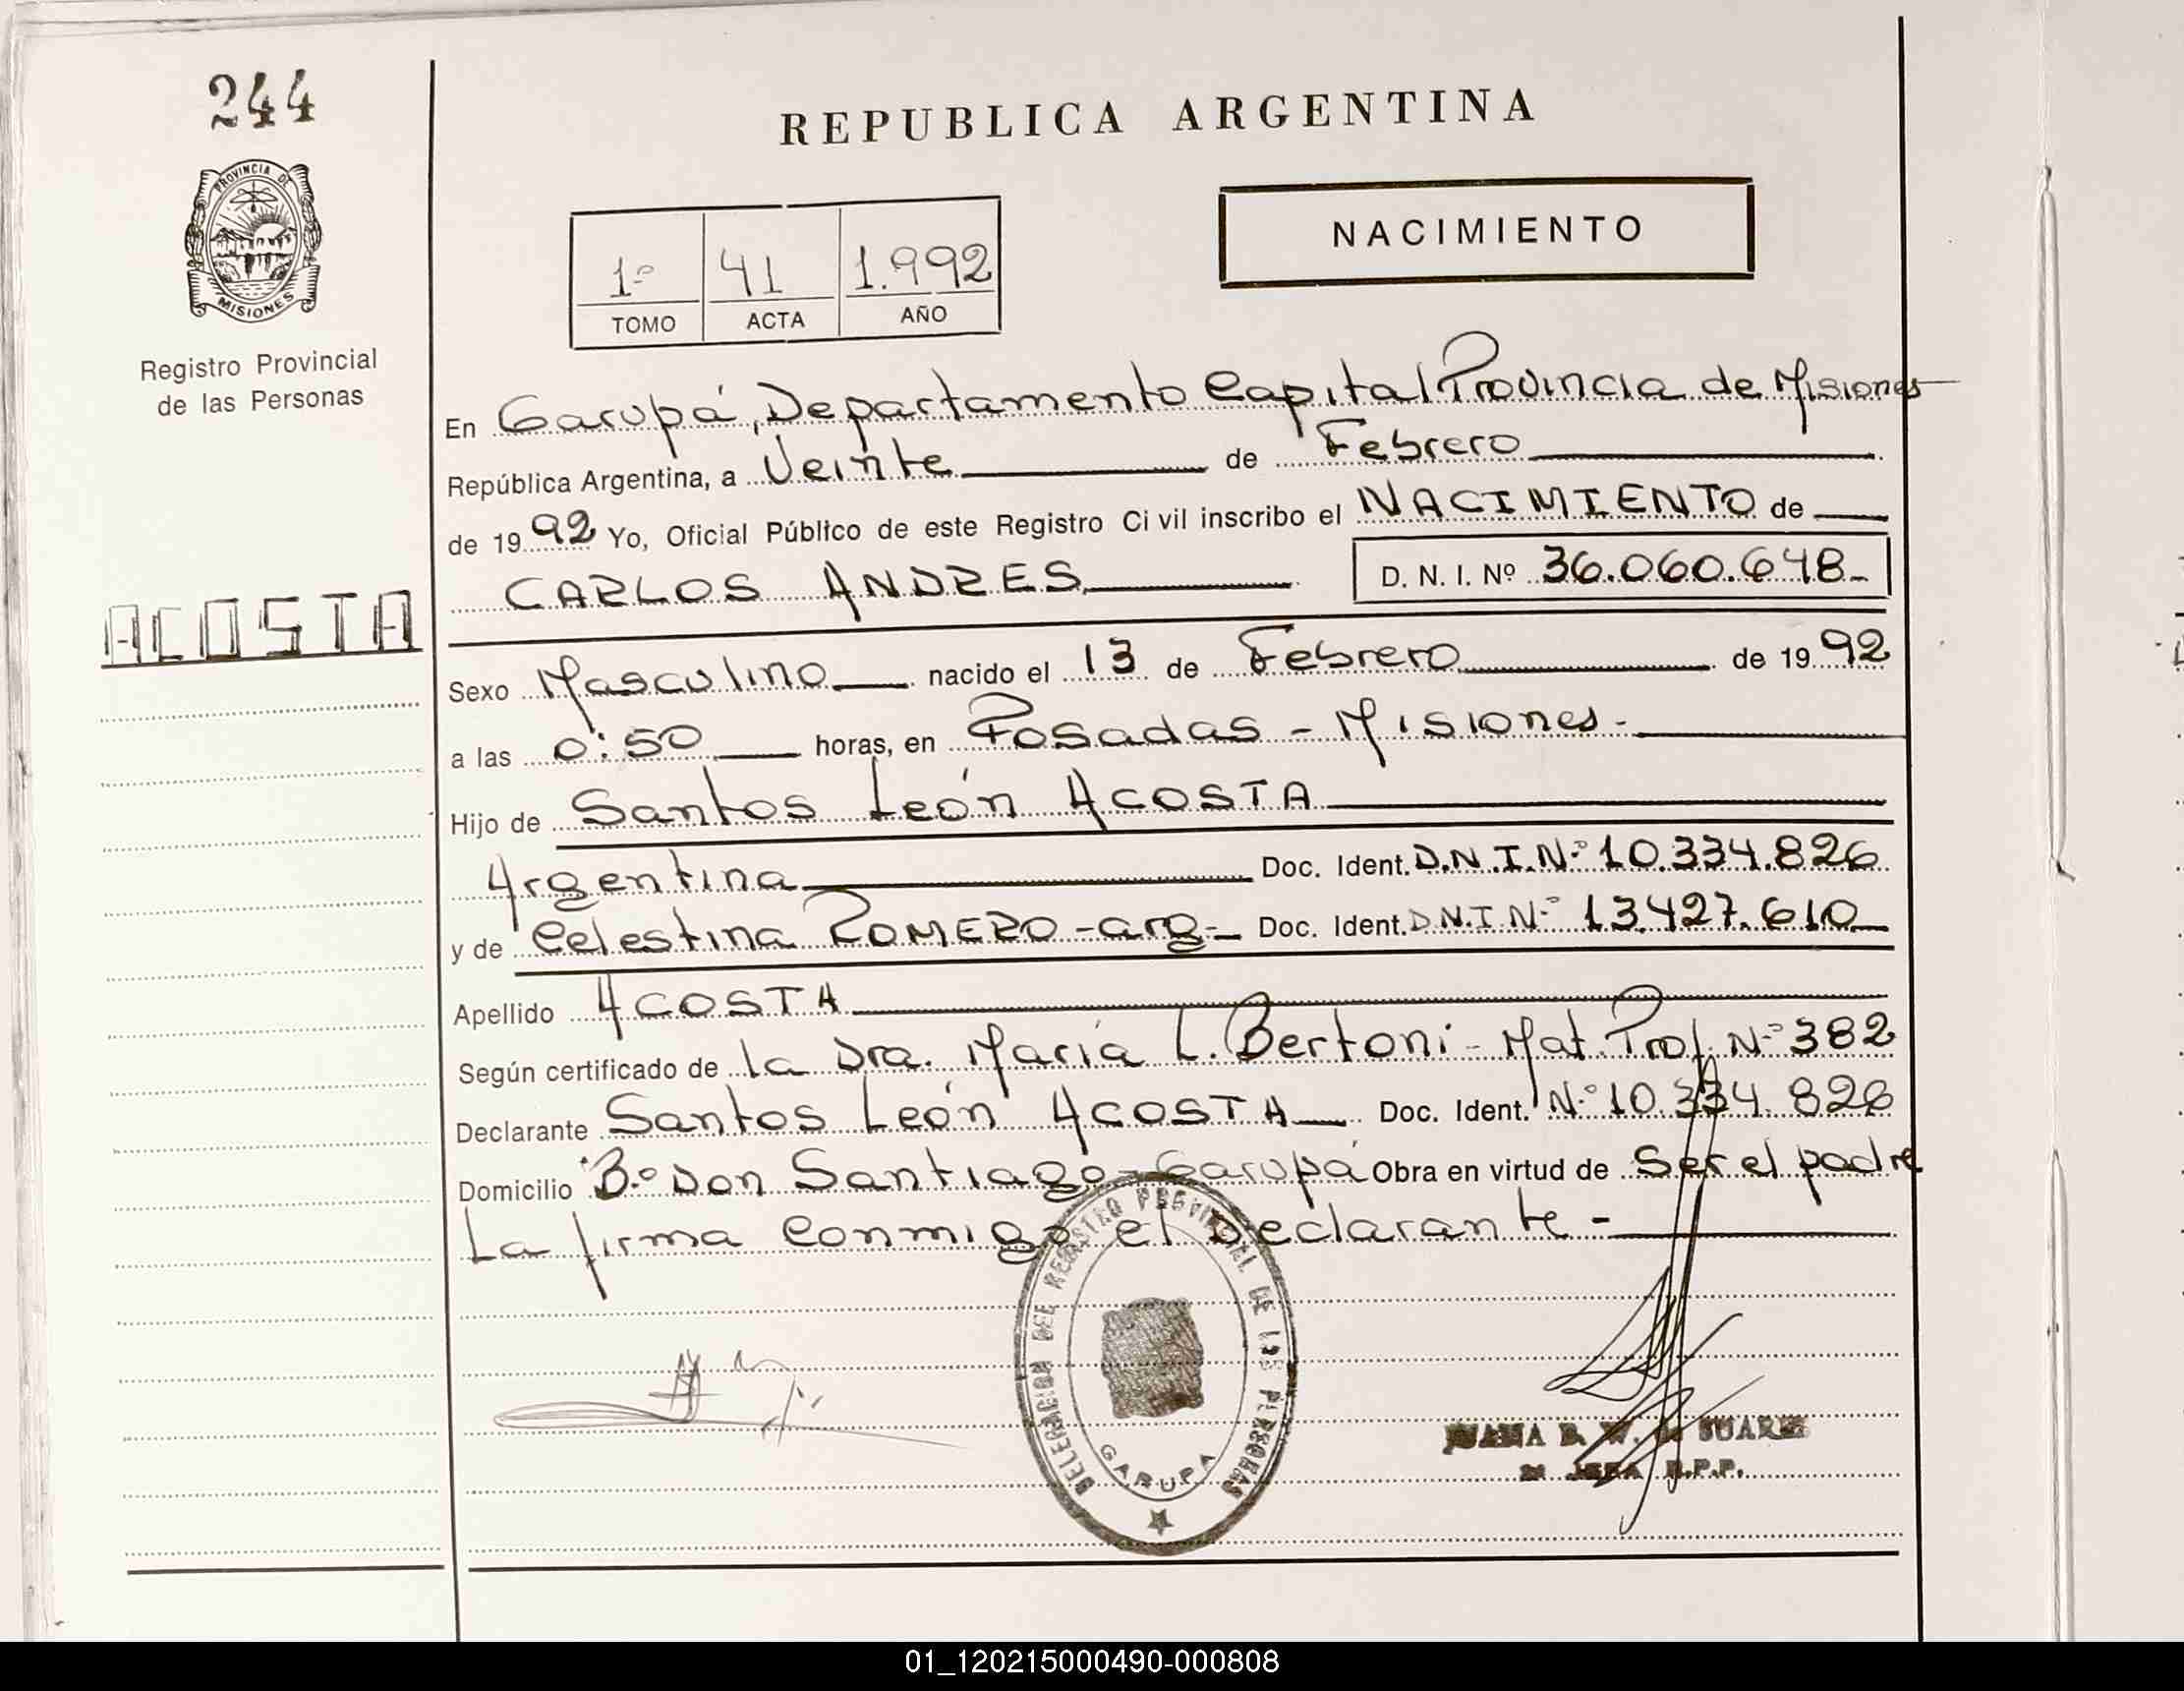 244
PROVINCIA DE
MISIONES
Registro Provincial
de las Personas
ACOSTA
REPUBLICA ARGENTINA
NACIMIENTO
1º 41 1.992
TOMO ACTA AÑO
En Garupá, Departamento Capital Provincia de Misiones
República Argentina, a Veinte de Febrero
de 1992 Yo, Oficial Público de este Registro Civil inscribo el NACIMIENTO de
CARLOS ANDRES D. N. I. Nº 36.060.648-
Sexo Masculino nacido el 13 de Febrero de 1992
a las 0:50 horas, en Posadas - Misiones-
Hijo de Santos León ACOSTA
Argentina Doc. Ident. D.N.I.Nº 10.334.826
y de Celestina ROMERO - arg- Doc. Ident. D.N.I Nº 13.427.610
Apellido ACOSTA
Según certificado de la Dra. María L. Bertoni - Mat. Prof. Nº 382
Declarante Santos León ACOSTA Doc. Ident. Nº 10.334.826
Domicilio Bº Don Santiago - Garupá Obra en virtud de Ser el padre
La firma conmigo el Declarante -
DELEGACION DEL REGISTRO PROVINCIAL DE LAS PERSONAS
GARUPA
JUANA B. W. de SUAREZ
JEFA R.P.P.
01_120215000490-000808